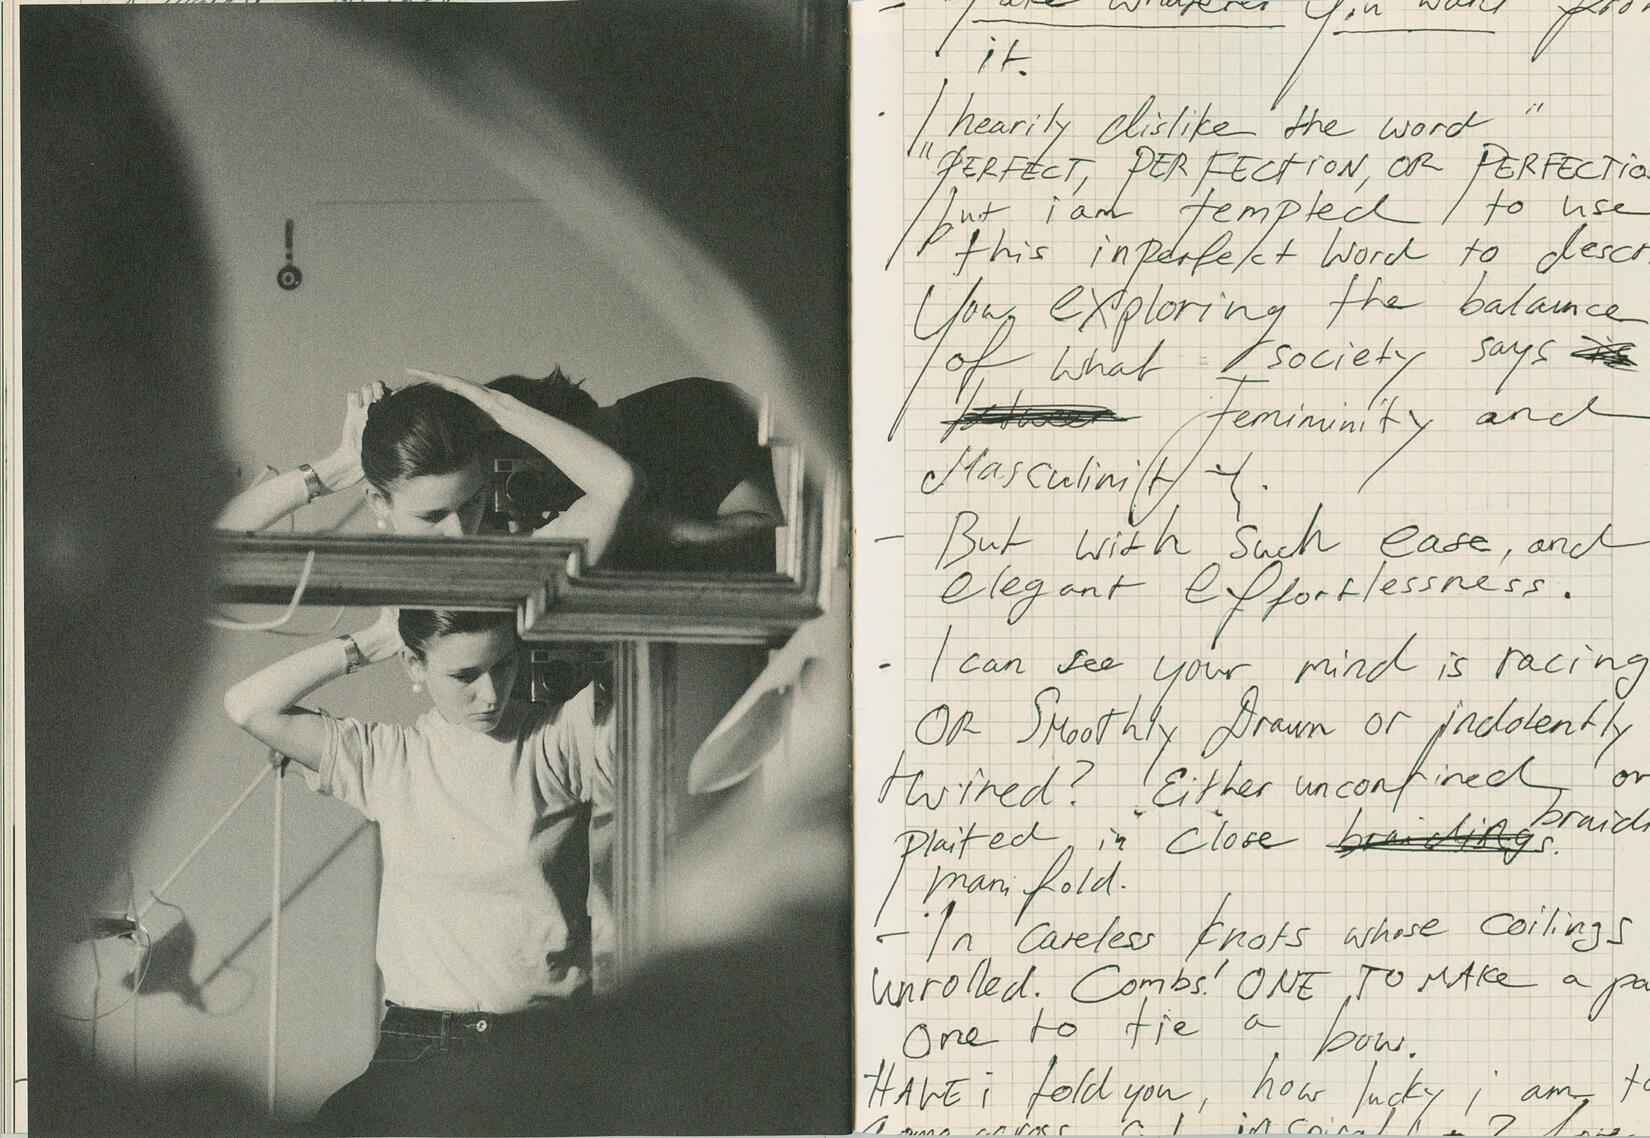 - Take whatever you want from
it.
. I hearily dislike the word "
"PERFECT, PERFECTION, OR PERFECTIO
but i am tempted to use
this inperfekt word to descr
You, exploring the balaunce
of what society says
Femininity and
Masculinity.
- But with such ease, and
elegant effortlessness.
- I can see your mind is racing
OR Smoothly Drawn or indolently
twired? Either unconfined or
plaited in close braidings. braids
manifold.
- In careless knots whose coilings
unrolled. Combs! ONE TO MAKE a pa
One to tie a bow.
HAVE i told you, how lucky i am to